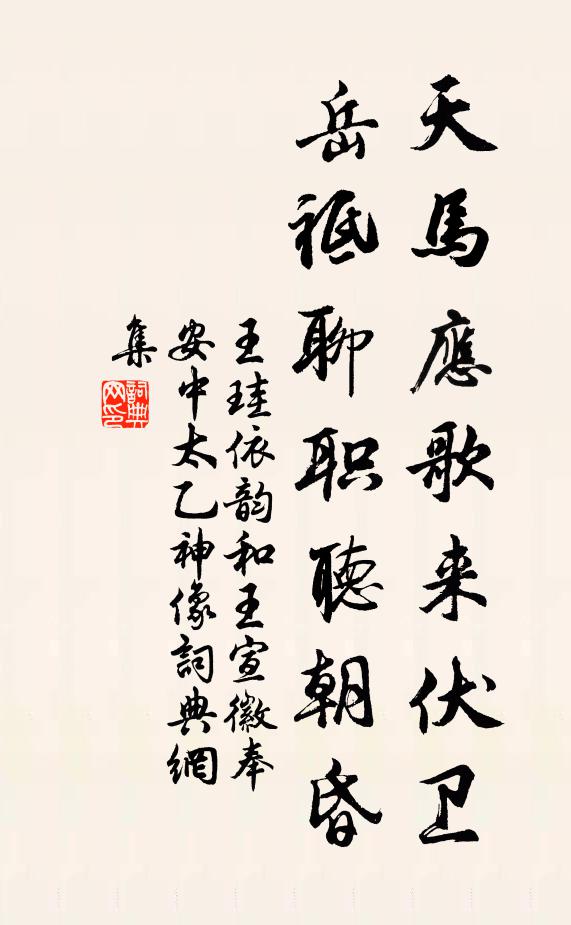 天馬應歌来伏卫
岳祗聊职聴朝昏
王珪依韵和王宣徽奉
安中太乙神像詞典網
集
詞典
网印